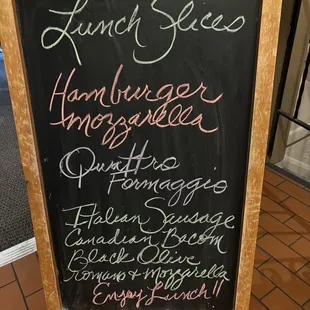 Lunch Slices
Hamburger
Mozzarella
Quattro
Formaggio
Italian Sausage
Canadian Bacon
Black Olive
Romano & Mozzarella
Enjoy Lunch!!